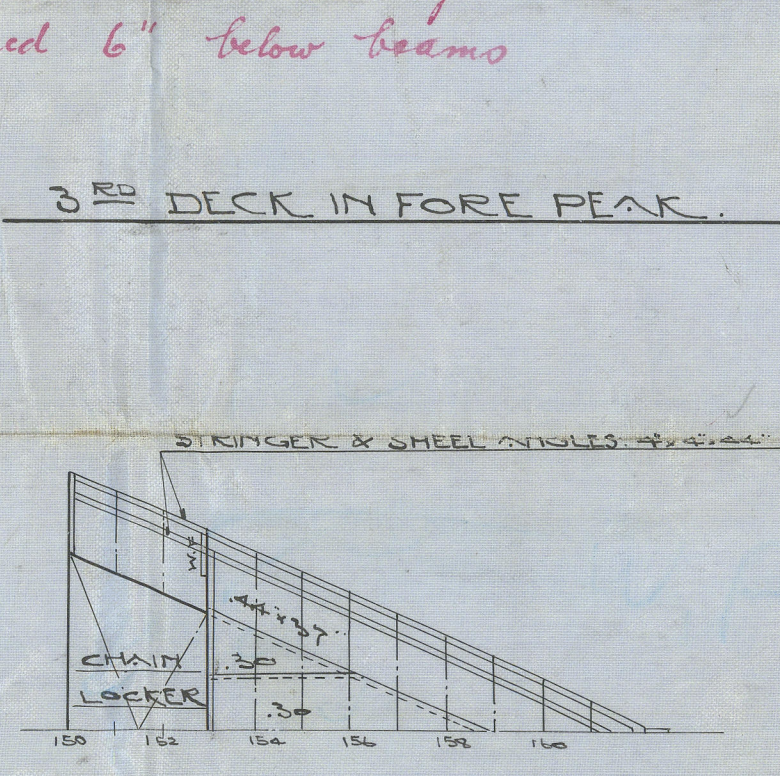 ed 6" below beams
3RD DECK IN FORE PEAK.
STRINGER & SHEEL ANGLES. 4"x 4"x .44"
W.T.
.44 x 37
CHAIN
.30
LOCKER
.30
150 152 154 156 158 160